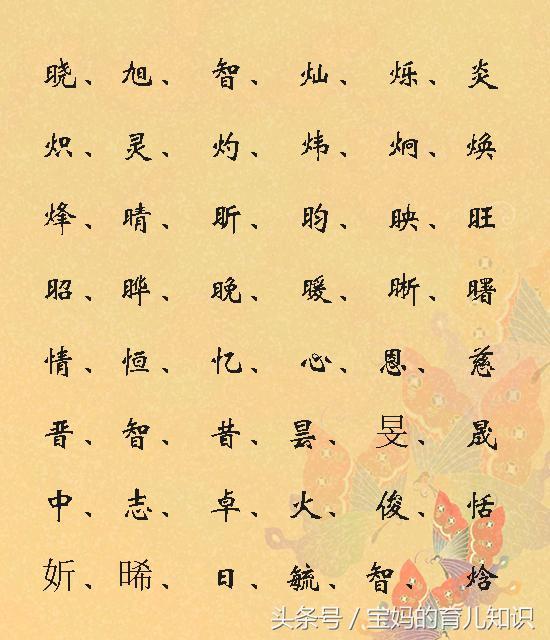 晓、旭、智、灿、烁、炎
炽、灵、灼、炜、炯、焕
烽、晴、昕、昀、映、旺
昭、晔、晚、暖、晰、曙
情、恒、忆、心、恩、慈
晋、智、昔、昙、旻、晟
中、志、卓、火、俊、恬
妡、晞、日、毓、智、焓
头条号/宝妈的育儿知识